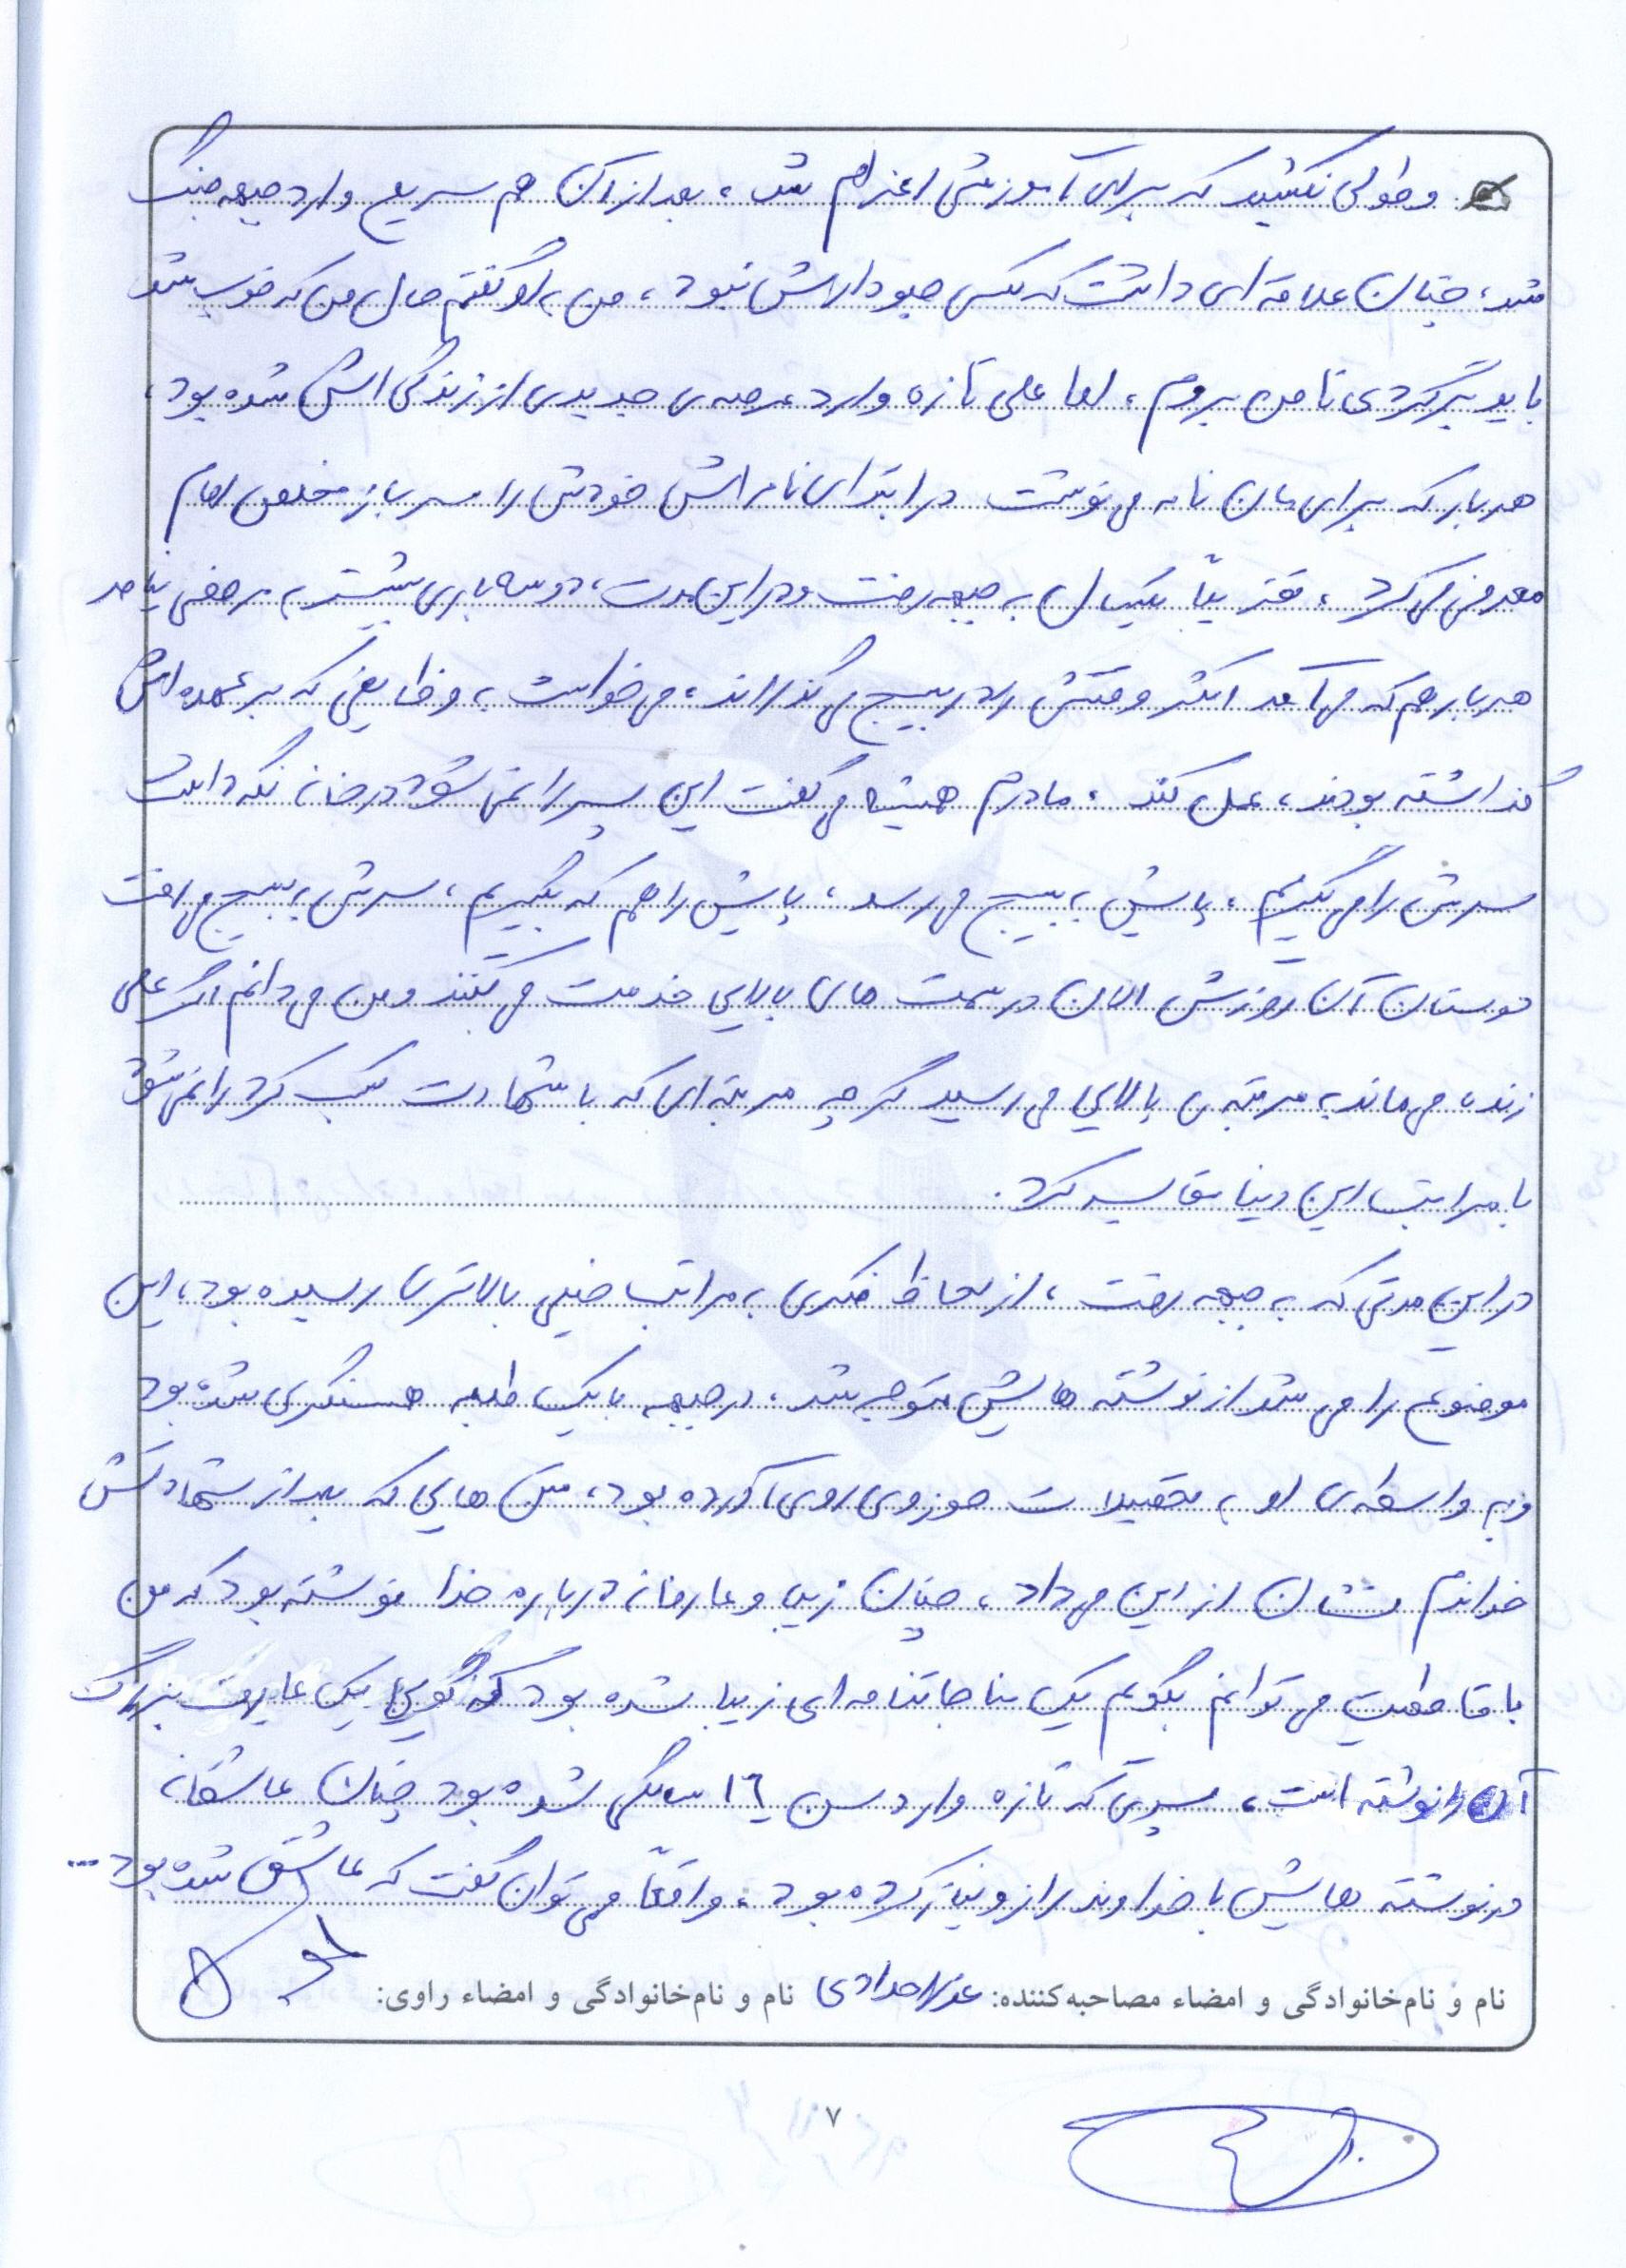 و طولی نکشید که برای آموزش اعزام شد، بعد از آن هم سریع وارد جبهه جنگ
شد، چنان علاقه ای داشت که کسی جلودارش نبود، من به او گفتم حال من که خوب شد
باید برگردی تا من بروم، اما علی تازه وارد عرصه ی جدیدی از زندگی اش شده بود،
هر بار که برای مان نامه می نوشت در ابتدای نامه اش خودش را سرباز مخلص امام
معرفی می کرد، تقریباً یکسال به جبهه رفت و در این مدت، دو سه باری بیشتر به مرخصی نیامد
هر بار هم که می آمد اکثر وقتش را در بسیج می گذراند، می خواست به وظایفی که بر عهده اش
گذاشته بودند، عمل کند، مادرم همیشه می گفت این پسر را نمی شود در خانه نگه داشت
سرش را می گیریم، پایش به بسیج می رسد، پایش را هم که بگیریم، سرش به بسیج می افتد
دوستان آن روزش الان در سمت های بالایی خدمت می کنند و من می دانم اگر علی
زنده می ماند به مرتبه ی بالایی می رسید گرچه مرتبه ای که با شهادت کسب کرد را نمی شود
با مراتب این دنیا مقایسه کرد.
در این مدتی که به جبهه رفت، از لحاظ فکری به مراتب خیلی بالاتری رسیده بود، این
موضوع را می شد از نوشته هایش متوجه شد، در جبهه با یک طلبه همسنگری شده بود
و به واسطه ی او به تحصیلات حوزوی روی آورده بود، متن هایی که بعد از شهادتش
خواندم نشان از این می داد، چنان زیبا و عارفانه درباره خدا نوشته بود که من
با قاطعیت می توانم بگویم یک مناجاتنامه ای زیبا شده بود که گویی یک عارف بزرگ
آن را نوشته است، پسری که تازه وارد سن ۱۶ سالگی شده بود چنان عاشقانه
در نوشته هایش با خداوند راز و نیاز کرده بود، واقعاً می توان گفت که عاشق شده بود ...
نام و نام‌خانوادگی و امضاء مصاحبه‌کننده: عذرا حدادی نام و نام‌خانوادگی و امضاء راوی:
۷